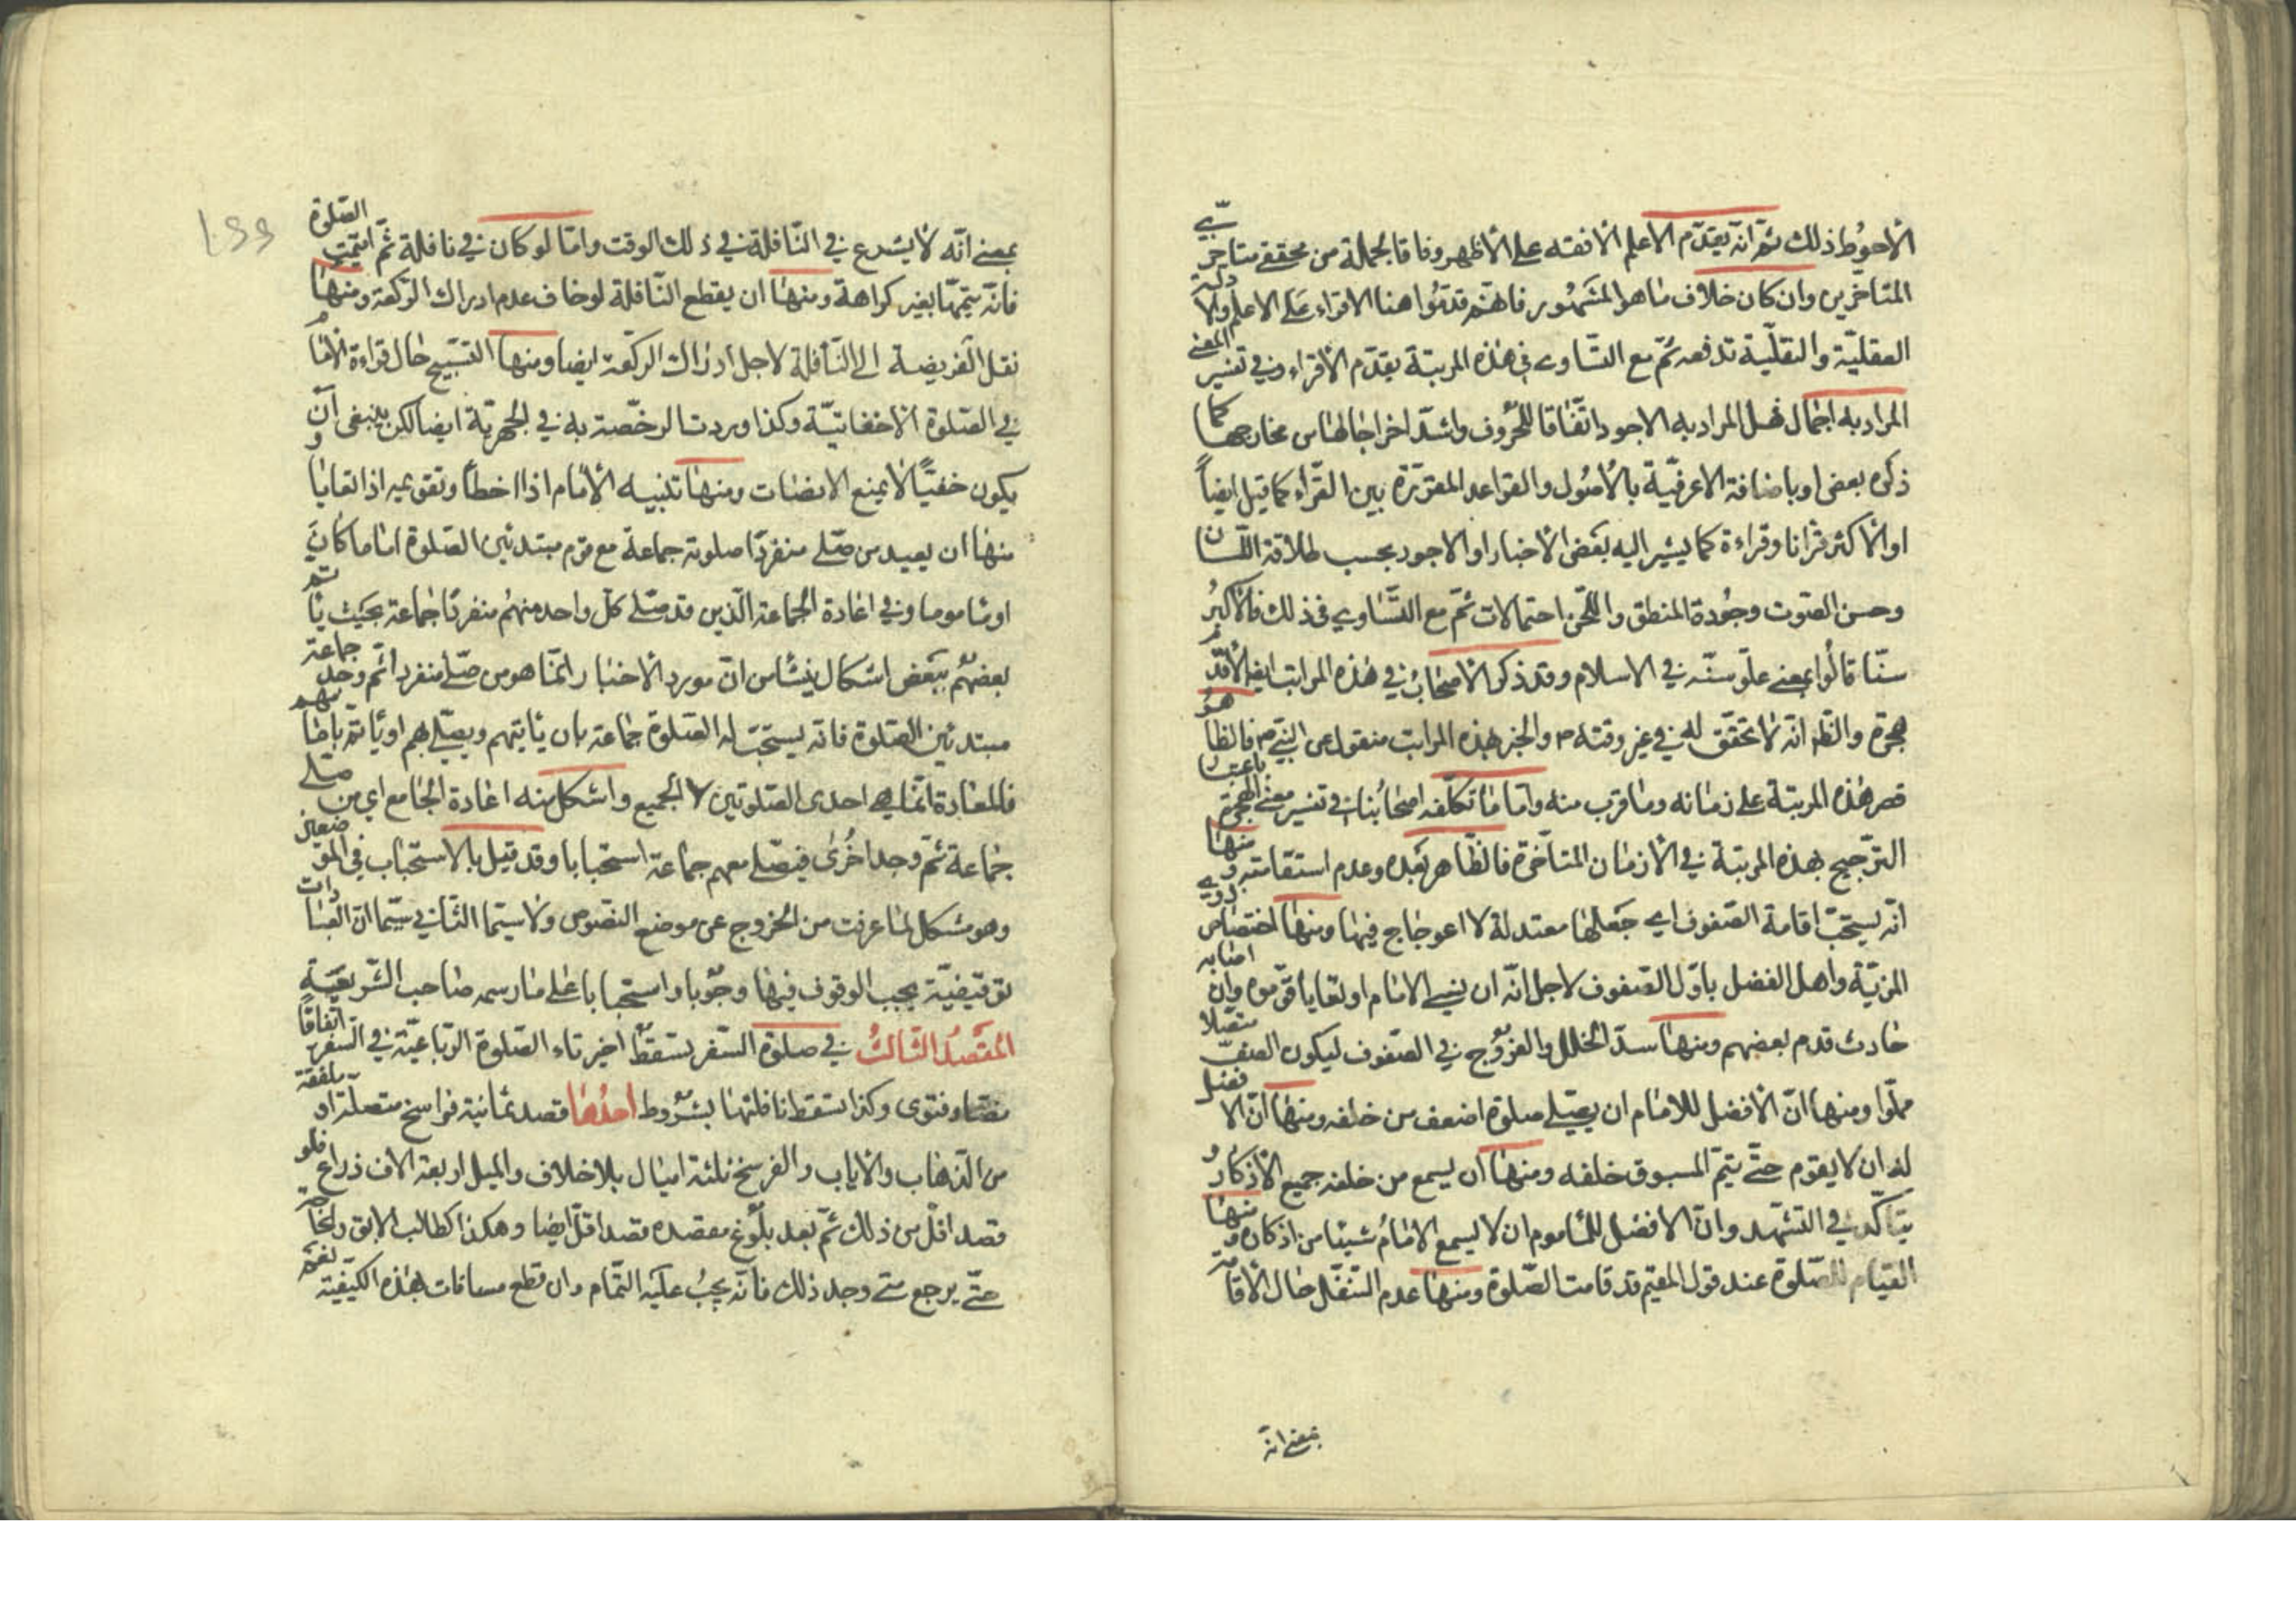 الاحوط ذلك ثم انه يقدّم الاعلم الافقه على الاظهر وفاقا لجملة من محققى متاخرى
المتاخّرين وان كان خلاف ما هو المشهور فانهم قدموا هنا الاقراء على الاعلم والادلة
العقليّة والنقليّة تدفعه ثمّ مع التساوى فى هذه المرتبة يقدّم الاقراء وفى تفسير المعنى
المراد به اجمال فهل المراد به الاجود اتّفاقا للحروف واشدّ اخراجا لها من مخارجها كما
ذكره بعض او باضافة الاعرفيّة بالاصول والقواعد المقرّرة بين القرّاء كما قيل ايضاً
او الاكثر قرانا وقراءة كما يشير اليه بعض الاخبار او الاجود بحسب طلاقة اللّسان
وحسن الصّوت وجودة المنطق واللّحن احتمالات ثمّ مع التّساوي فى ذلك فالاكبر
سنّا قالوا بمعنى علوّ سنّه فى الاسلام وقد ذكر الاصحاب فى هذه المراتب ايضا الاقدم
هجرة والظ انّه لا تحقّق له فى غير وقته ص والخبر بهذه المراتب منقول عن النبي ص فالظاهر
قصر هذه المرتبة على زمانه وما قرب منه وامّا ما تكلّفه اصحابنا فى تفسير معنى الهجرة باعتبار
الترجيح بهذه المرتبة فى الازمان المتاخّرة فالظّاهر بعده وعدم استقامته ومنها
انّه يستحبّ اقامة الصّفوف اى جعلها معتدلة لا اعوجاج فيها ومنها اختصاص ذوى
المزيّة واهل الفضل باوّل الصّفوف لاجل انّه ان نسى الامام او تعايا قوّموه وان اصابه
حادث قدم بعضهم ومنها سدّ الخلل والفروج فى الصّفوف ليكون الصّفّ متّصلا
مملّوا ومنها انّ الافضل للامام ان يصلّى صلوة اضعف من خلفه ومنها انّ الافضل
له ان لا يقوم حتّى يتمّ المسبوق خلفه ومنها ان يسمع من خلفه جميع الاذكار و
يتاكّد فى التشهّد وانّ الافضل للمأموم ان لا يسمع الامام شيئا من اذكاره ومنها
القيام للصّلوة عند قول المقيم قد قامت الصّلوة ومنها عدم التنفّل حال الاقامة
بمعنى انه
بمعنى انّه لا يشرع فى النّافلة فى ذلك الوقت وامّا لو كان فى نافلة ثمّ اقيمت الصّلوة
فانّه يتمّها بغير كراهة ومنها ان يقطع النّافلة لو خاف عدم ادراك الرّكعة ومنها
نقل الفريضة الى النّافلة لاجل ادراك الركعة ايضا ومنها التسبيح حال قراءة الامام
فى الصّلوة الاخفاتيّة وكذا وردت الرخّصة به فى الجهريّة ايضا لكن ينبغى ان
يكون خفيّا لا يمنع الانصات ومنها تنبيه الامام اذا اخطأ وتقويمه اذا تعايا و
منها ان يعيد من صلّى منفردا صلوته جماعة مع قوم مبتدئين الصّلوة اماما كان
او مأموما وفى اعادة الجماعة الّذين قد صلّى كلّ واحد منهم منفردا جماعة بحيث يأتم
بعضهم ببعض اشكال ينشأ من انّ مورد الاخبار انّما هو من صلّى منفردا ثم وجد جماعة
مبتدئين الصّلوة فانه يستحبّ له الصّلوة جماعة بان يأتيهم ويصلّى بهم او يأتمّ بامامهم
فالمعادة انّما هى احدى الصّلوتين لا الجميع واشكل منه اعادة الجامع اى من صلّى
جماعة ثم وجد اخرى فيصلّى معهم جماعة استحبابا وقد قيل بالاستحباب فى الموضعين
وهو مشكل لما عرفت من الخروج عن موضع النصوص ولا سيّما الثّانى سيّما انّ العبادات
توقيفيّة يجب الوقوف فيها وجوبا واستحبابا على ما رسمه صاحب الشّريعة
المقصد الثالث فى صلوة السّفر يسقط اخيرتاء الصّلوة الرّباعيّة فى السفر اتفاقاً
نصّا وفتوى وكذا يسقط نافلتها بشروط احدها قصد ثمانية فراسخ متصلة او ملفقة
من الذهاب والاياب والفرسخ ثلثة اميال بلا خلاف والميل اربعة الاف ذراع فلو
قصد اقلّ من ذلك ثمّ بعد بلوغ مقصده قصد اقلّ ايضا وهكذا كطالب الابق والحاجة
حتّى يرجع متى وجد ذلك فانّه يجب عليه التّمام وان قطع مسافات بهذه الكيّفيّة